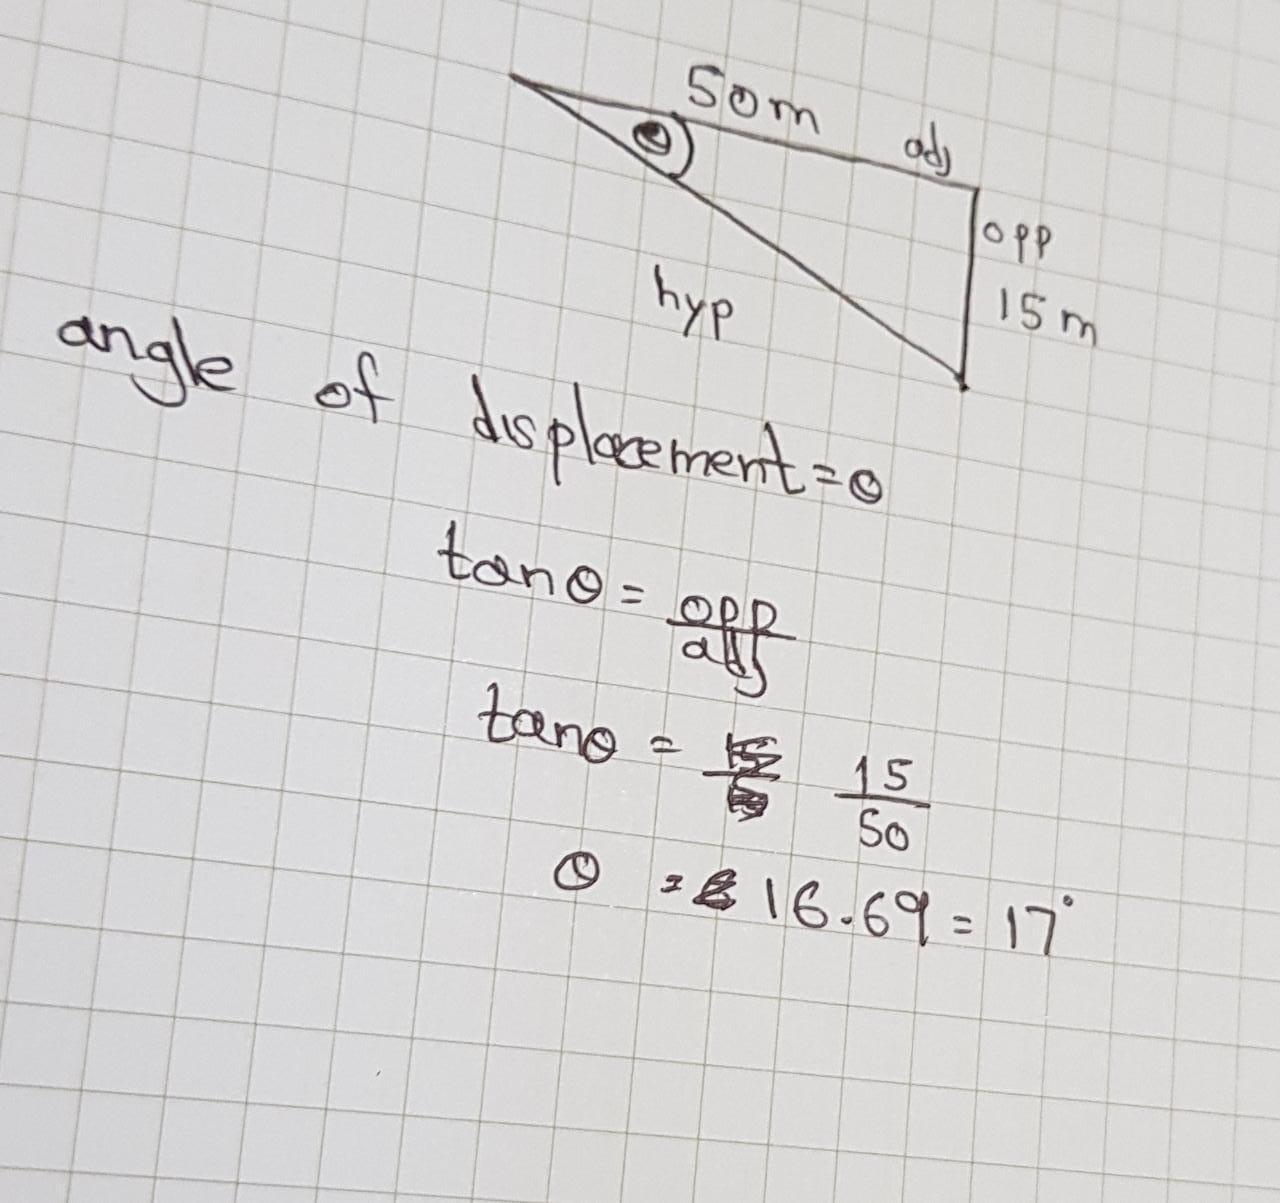 50m adj
opp
15m
hyp
angle of displacement = θ
tanθ = opp/adj
tanθ = 15/50
θ = 16.69 = 17°